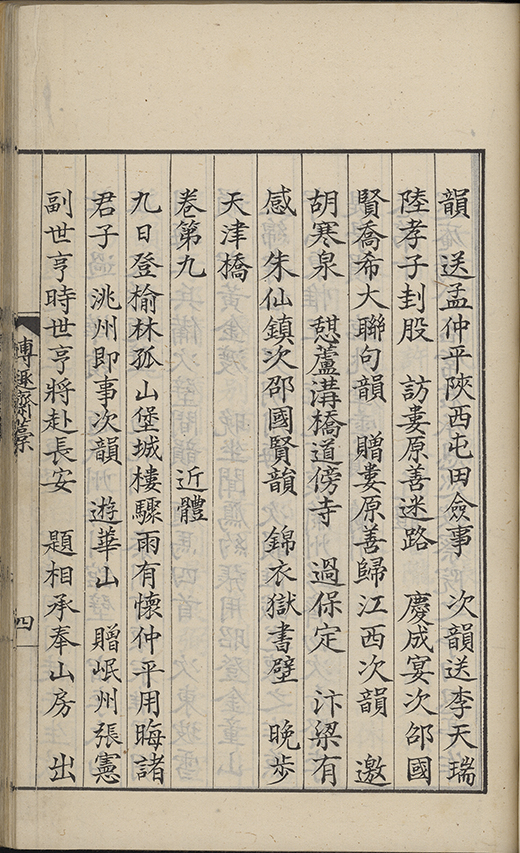 韻　送孟仲平陝西屯田僉事　次韻送李天瑞
陸孝子刲股　訪婁原善迷路　慶成宴次邵國
賢喬希大聯句韻　贈婁原善歸江西次韻　邀
胡寒泉　憇蘆溝橋道傍寺　過保定　汴梁有
感　朱仙鎮次邵國賢韻　錦衣獄書壁　晚步
天津橋
卷第九　　　　　　近體
九日登榆林孤山堡城樓驟雨有懷仲平用晦諸
君子　洮州即事次韻　遊華山　贈岷州張憲
副世亨時世亨將赴長安　題相承奉山房　出
博趣齋藁
四